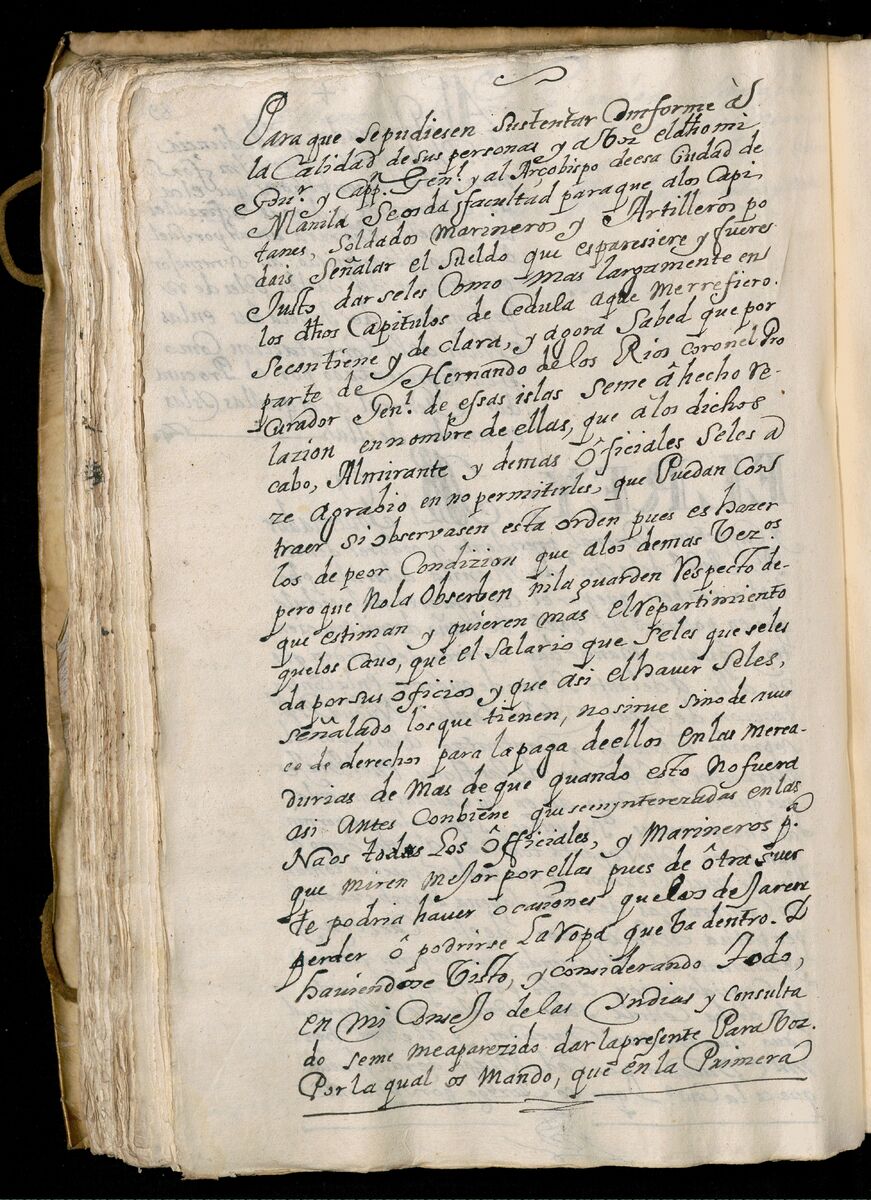 Para que sepudiesen sustentar Comforme à
la Calidad de sus personas y a Voz el dho mi
Govr. y Capp.n Gen.l y al Arçobispo de esa Ciudad de
Manila Seos da facultad para que a los Capi,
tanes, Soldados Marineros y Artilleros po
dais Señalar el Sueldo que es paresiere y fuere
Justo dar seles Como mas largamente en
los dhos Capitulos de Cedula aque merrefiero.
Secontiene y de clara, y agora Sabed que por
parte de Hernando de los Rios Coronel Pro
curador Gen.l de essas islas Seme â hecho re-
lazion ennombre de ellas, que a los dichos
cabo, Almirante y demas ôficiales Seles a
ze Agrabio en no permitirles, que Puedan Con
traer Si observasen esta orden pues es hazer
los de peor Condizion que a los demas Vez.os
pero que Nola Obserben nila guarden Respecto de-
que estiman y quieren mas El repartimiento
quelos Cavo, que el Salario que Seles que seles
da por sus oficios y que asi el haver Seles,
señalado los que tienen, no sirue sino de
de derechos para la paga de ellos en las merca-
durias de Mas de que quando esto no fuera
asi Antes Conbiene que seenynterezadas en las
Naos todos Los ôfficiales, y Marineros p.a
que miren mejor por ellas pues de ôtra suer
te podria haver ocasiones que los dejaren
perder ô podrirse La ropa que ba dentro. Y
haviendose Visto, y considerando Todo,
en mi Consejo de las Yndias y Consulta
do seme meaparezido dar la presente Para Voz.
Por la qual os Mando, que en la Primera